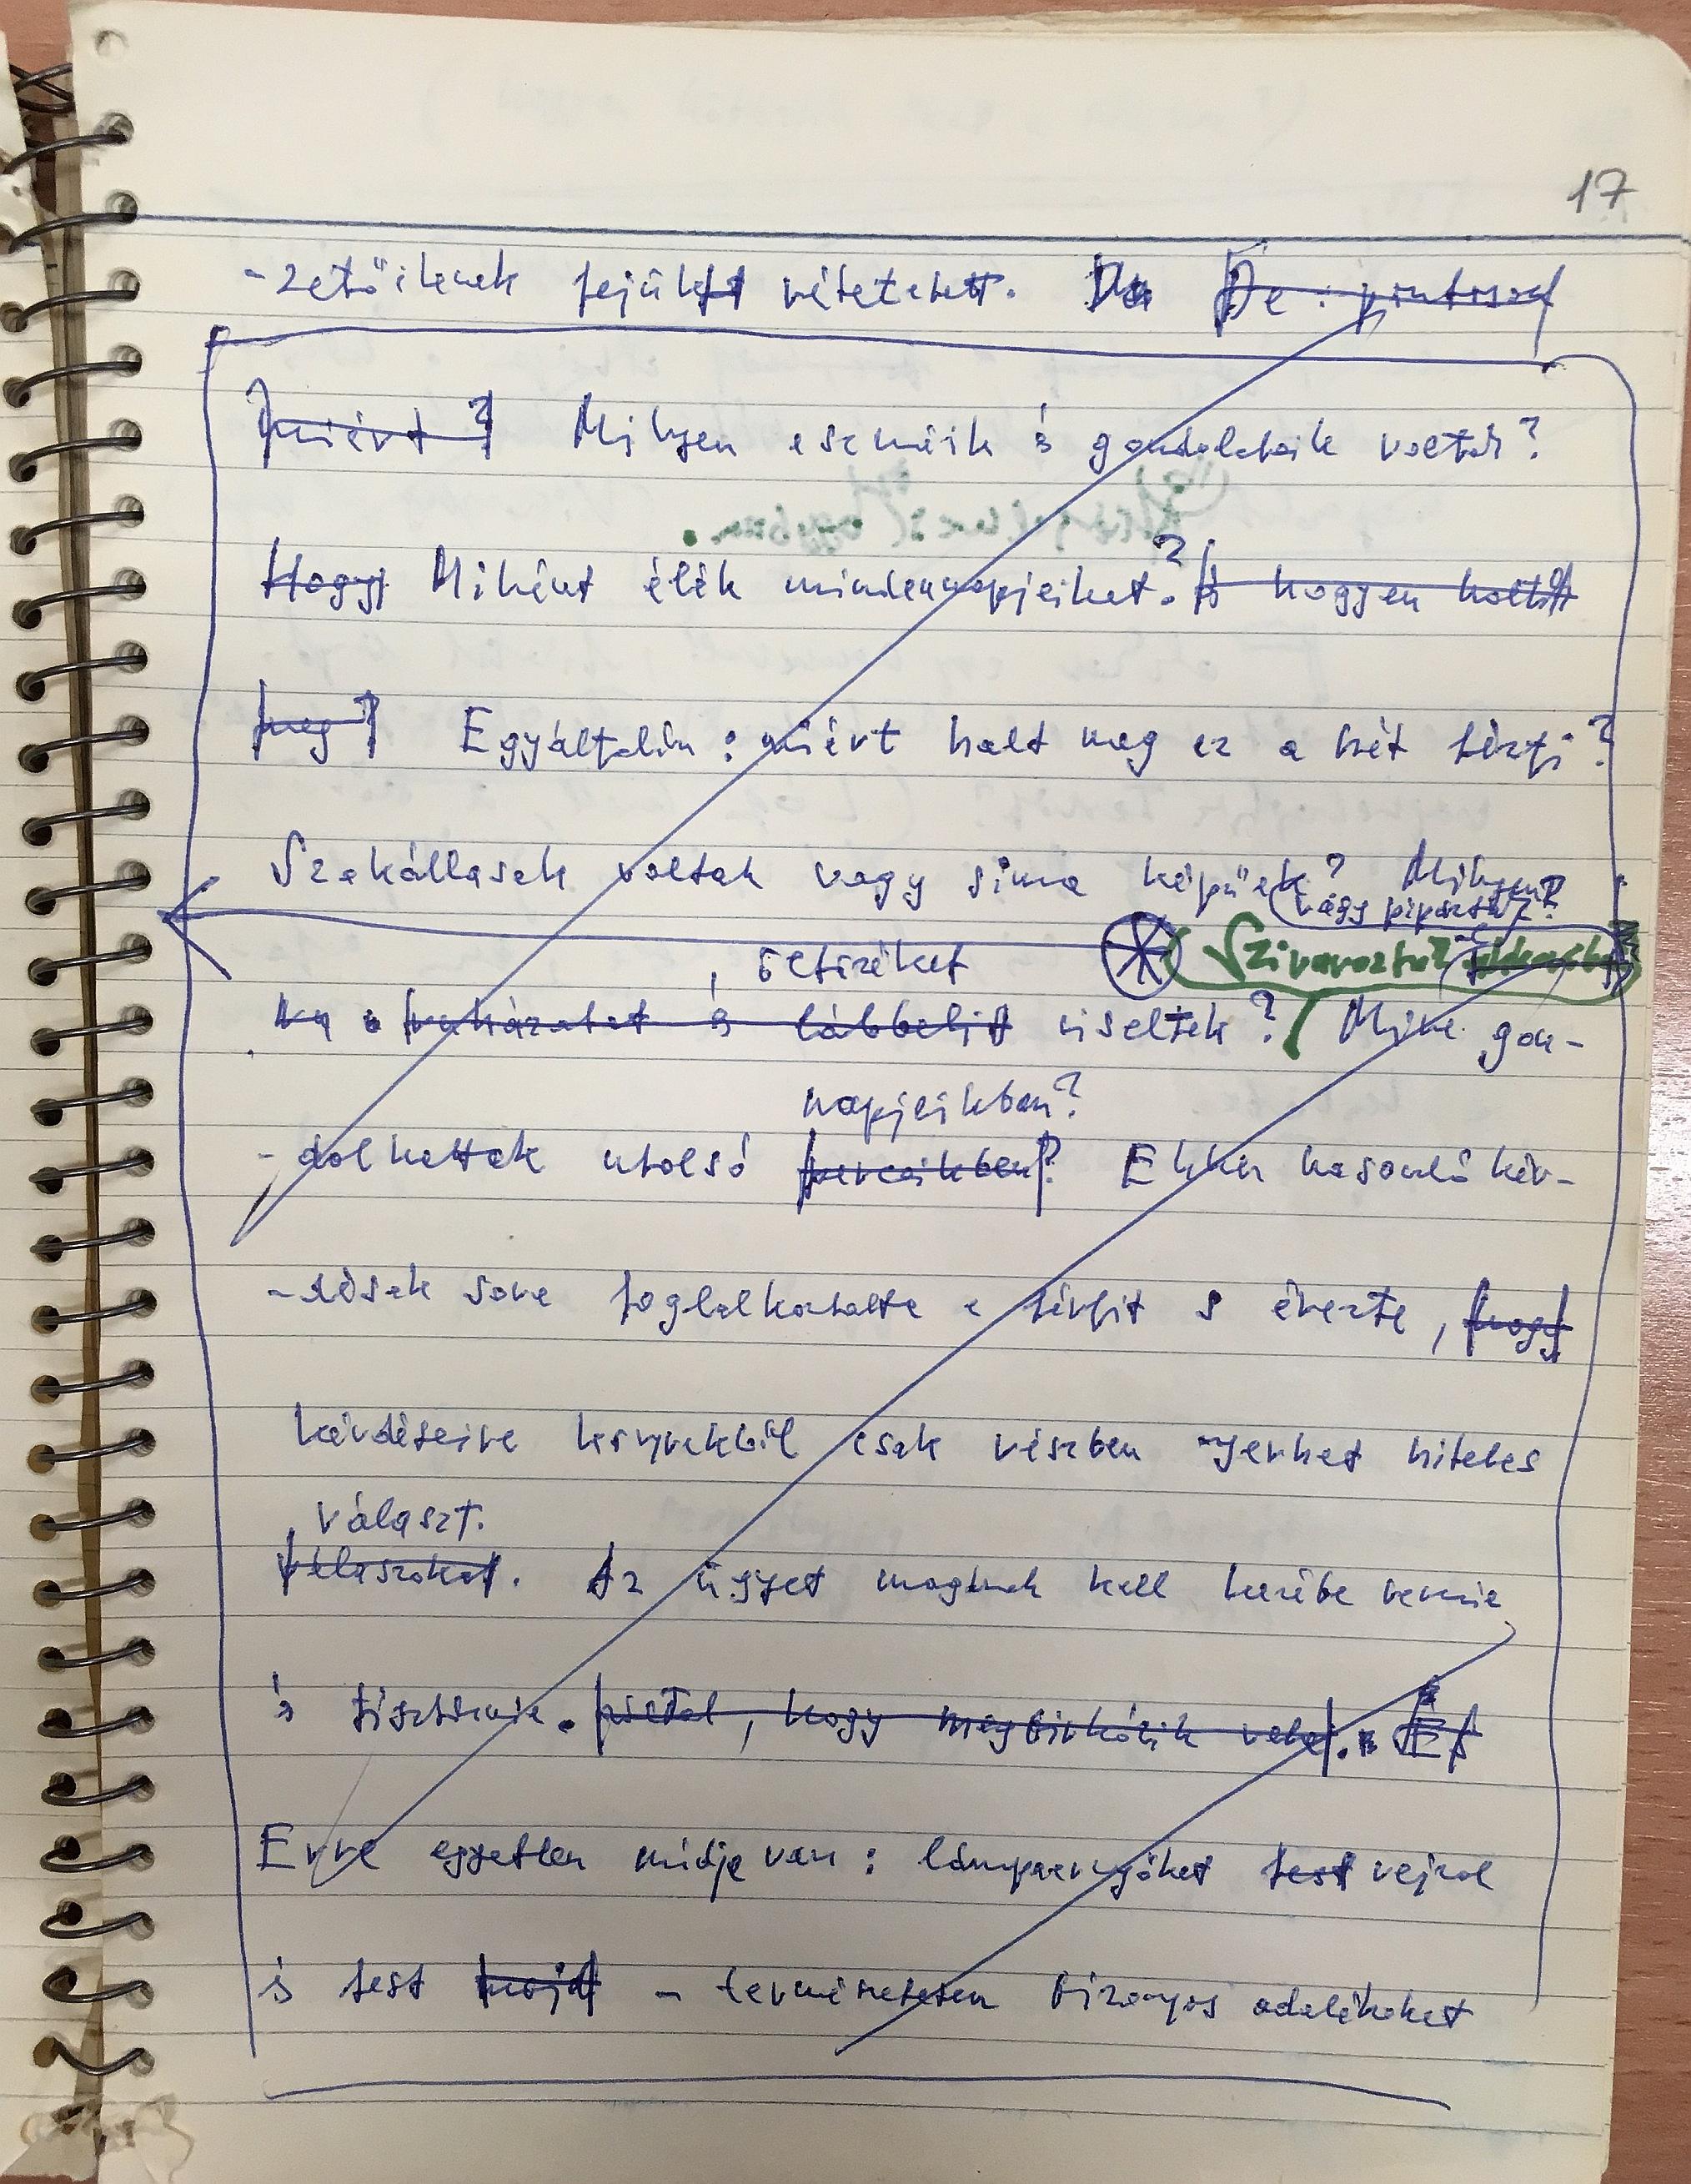 17
-zetőikenek fejükft vétetett. De De: pontosan
miért? Milyen eszméik s gondolataik voltak?
Hogy Miként élék mindennapjaikat? s hogyan haltak
meg? Egyáltalán: miért halt meg ez a hét férfi?
Szakállasak voltak vagy sima képűek? Milyen
vagy pipáztak?
, öltözéket Szivaroztak?
ruházatot s lábbelit viseltek? Mire gon-
napjaikban?
-dolhattak utolsó perceikben? Ehhez hasonló kér-
-dések sora foglalkoztatta a férfit s érezte, hogy
kérdéseire könyvekből csak részben nyerhet hiteles
választ.
válaszokat. Az ügyet magának kell kezébe vennie
s tisztáznia. , hogy megbirkózik vele. És
Erre egyetlen módja van: lámpaernyőket fest rajzol
s fest majd - természetesen bizonyos adalékokat